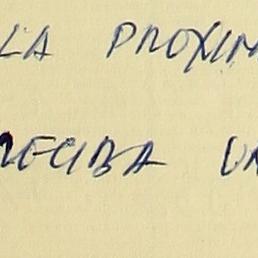 LA PROXIM
RECIBA UN